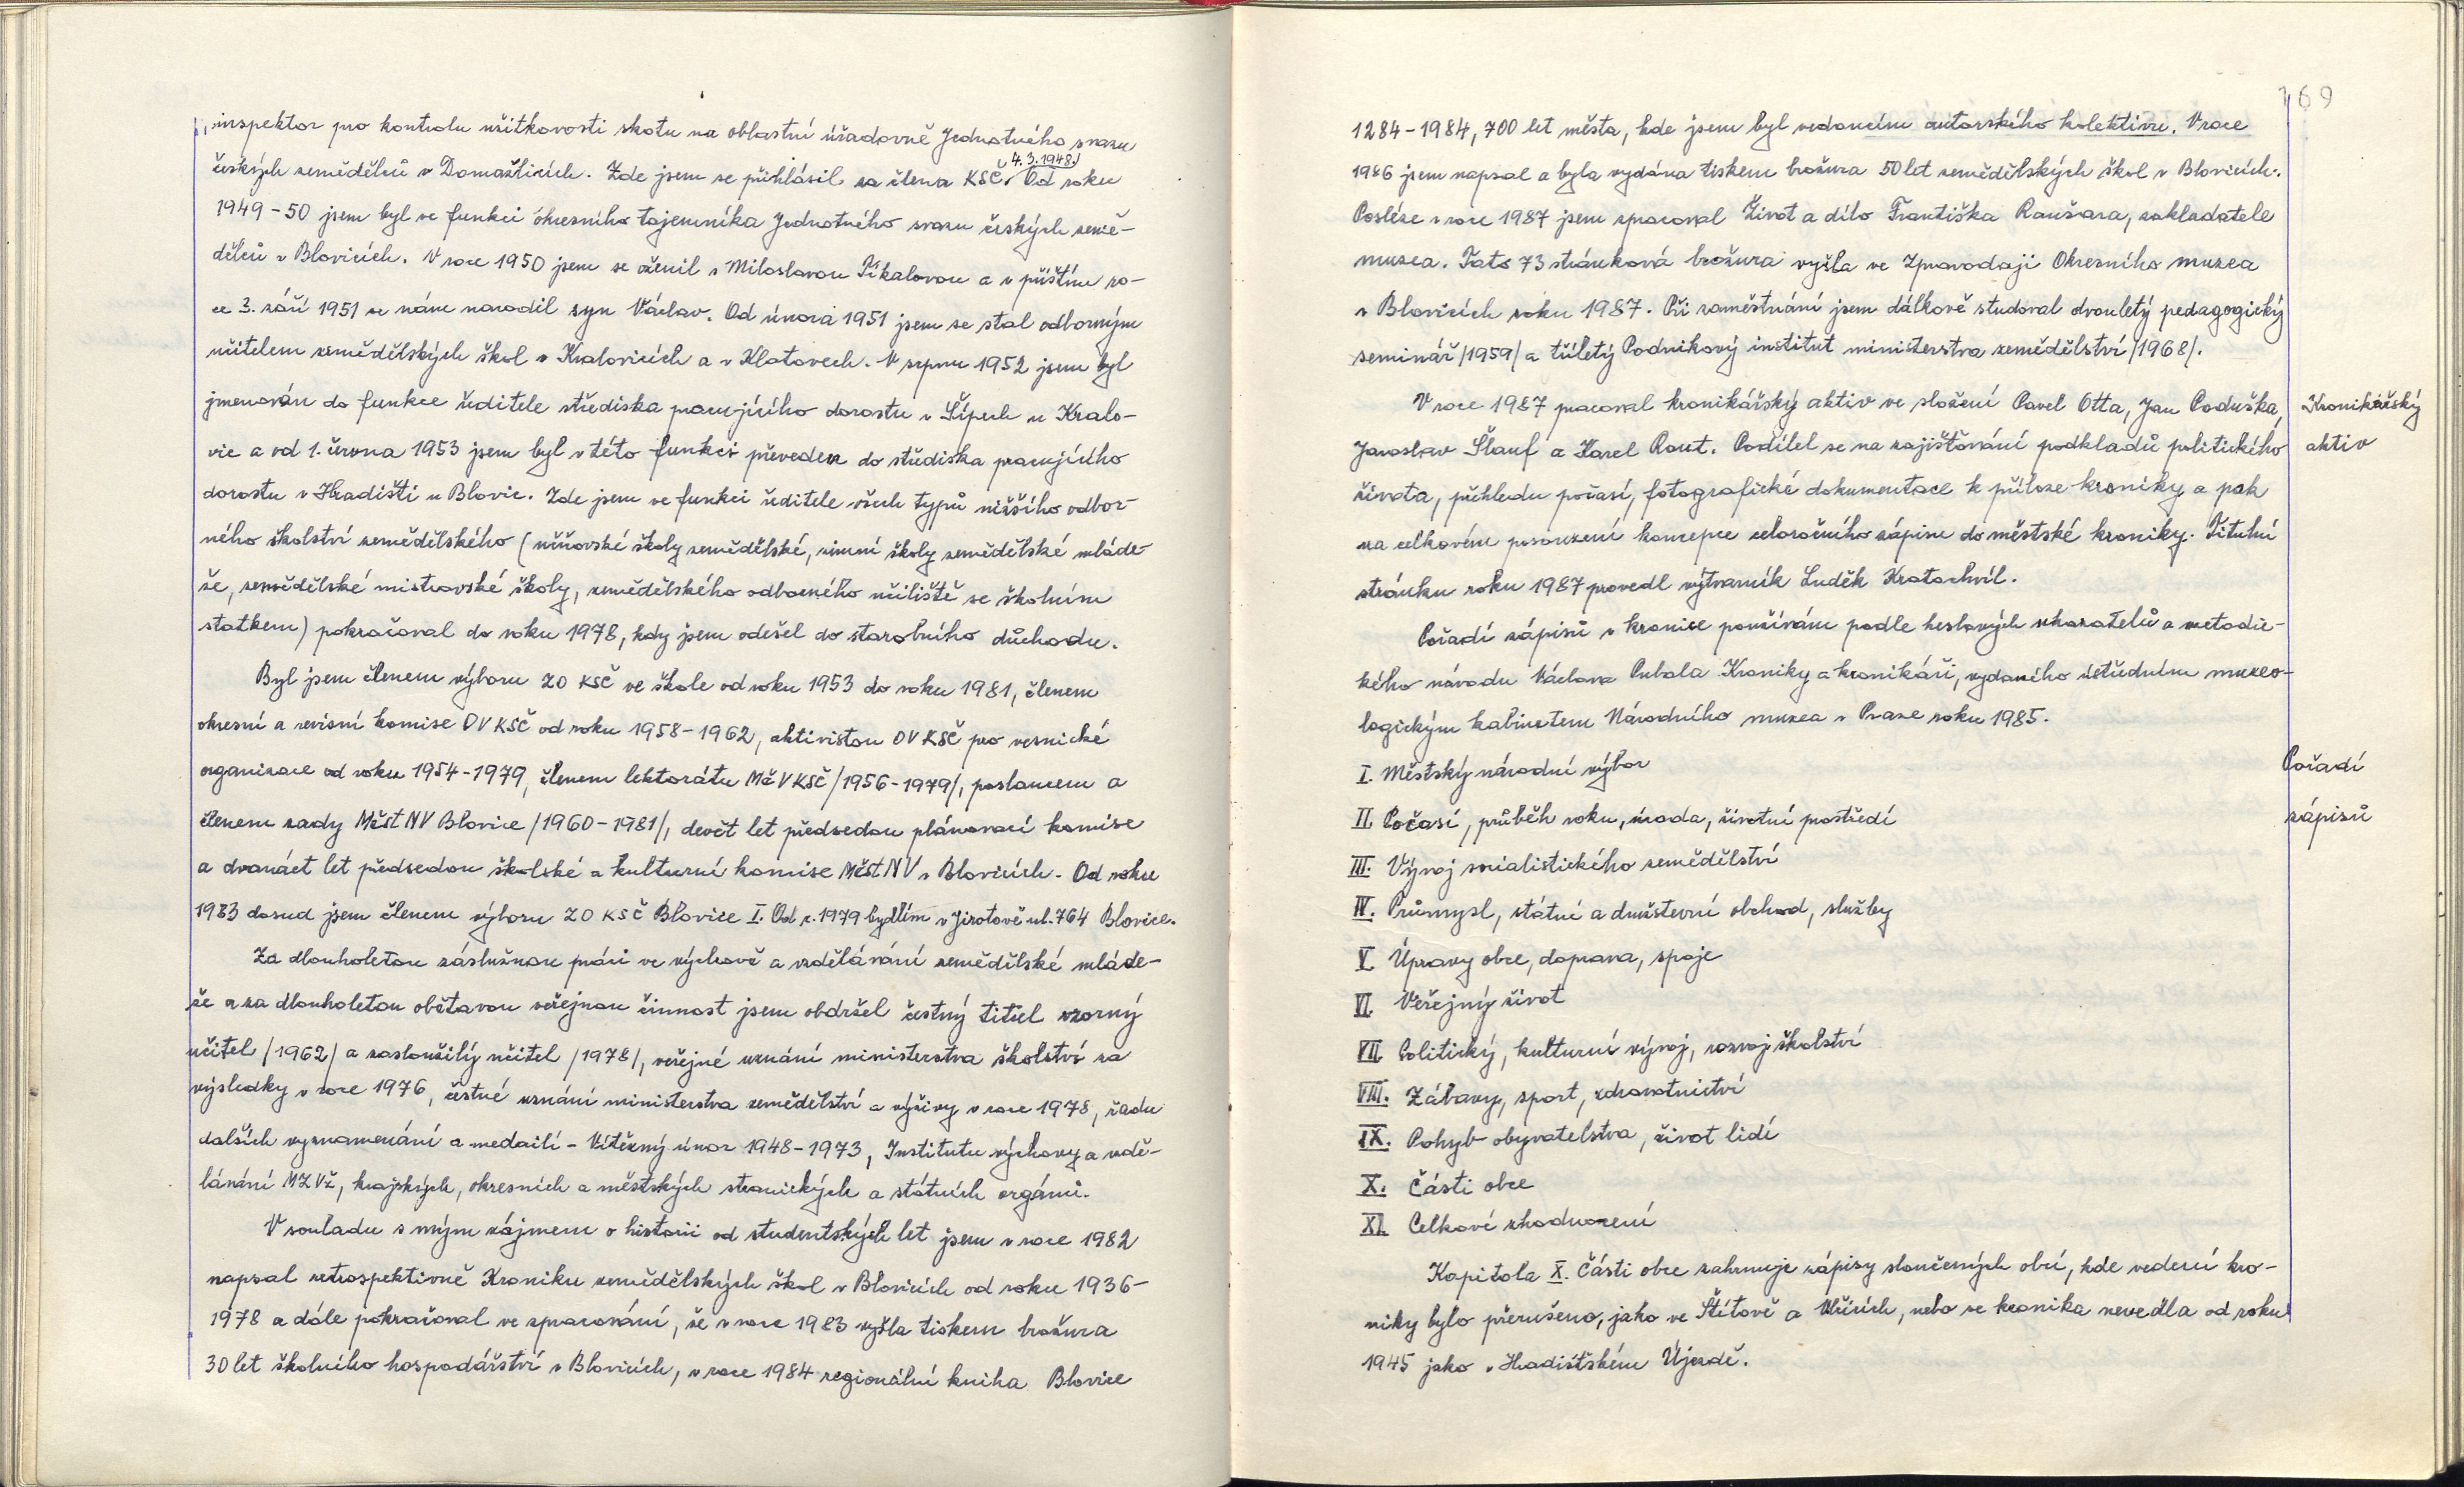 inspektor pro kontrolu užitkovosti skotu na oblastní úřadovně Jednotného svazu
českých zemědělců v Domažlicích. Zde jsem se přihlásil za člena KSČ. 4.3.1948. Od roku
1949-50 jsem byl ve funkci okresního tajemníka Jednotného svazu českých země-
dělců v Blovicích. V roce 1950 jsem se oženil s Miloslavou Říkalovou a v příštím ro-
ce 3. září 1951 se nám narodil syn Václav. Od února 1951 jsem se stal odborným
učitelem zemědělských škol v Kralovicích a v Klatovech. V srpnu 1952 jsem byl
jmenován do funkce ředitele střediska pracujícího dorostu v Šípech u Kralo-
vic a od 1. června 1953 jsem byl v této funkci převeden do střediska pracujícího
dorostu v Hradišti u Blovic. Zde jsem ve funkci ředitele všech typů nižšího odbor-
ného školství zemědělského (učňovské školy zemědělské, zimní školy zemědělské mláde-
že, zemědělské mistrovské školy, zemědělského odborného učiliště se školním
statkem) pokračoval do roku 1978, kdy jsem odešel do starobního důchodu.
Byl jsem členem výboru ZO KSČ ve škole od roku 1953 do roku 1981, členem
okresní a revisní komise OV KSČ od roku 1958-1962, aktivistou OV KSČ pro vesnické
organizace od roku 1954-1979, členem lektorátu MěV KSČ /1956-1979/, poslancem a
členem rady Měst NV Blovice /1960-1981/, devět let předsedou plánovací komise
a dvanáct let předsedou školské a kulturní komise Měst NV v Blovicích. Od roku
1983 dosud jsem členem výboru ZO KSČ Blovice I. Od r. 1979 bydlím v Jirotově ul. 764 Blovice.
Za dlouholetou záslužnou práci ve výchově a vzdělávání zemědělské mláde-
že a za dlouholetou obětavou veřejnou činnost jsem obdržel čestný titul vzorný
učitel /1962/ a zasloužilý učitel /1978/, veřejné uznání ministerstva školství za
výsledky v roce 1976, čestné uznání ministerstva zemědělství a výživy v roce 1978, řadu
dalších vyznamenání a medailí - Vítězný únor 1948-1973, Institutu výchovy a vzdě-
lávání MZVž, krajských, okresních a městských stranických a státních orgánů.
V souladu s mým zájmem o historii od studentských let jsem v roce 1982
napsal retrospektivně Kroniku zemědělských škol v Blovicích od roku 1936-
1978 a dále pokračoval ve zpracování, že v roce 1983 vyšla tiskem brožura
30 let školního hospodářství v Blovicích, v roce 1984 regionální kniha Blovice
169
1284-1984, 700 let města, kde jsem byl vedoucím autorského kolektivu. V roce
1986 jsem napsal a byla vydána tiskem brožura 50 let zemědělských škol v Blovicích.
Posléze v roce 1987 jsem zpracoval Život a dílo Františka Raušara, zakladatele
muzea. Tato 73 stránková brožura vyšla ve Zpravodaji Okresního muzea
v Blovicích roku 1987. Při zaměstnání jsem dálkově studoval dvouletý pedagogický
seminář /1959/ a tříletý Podnikový institut ministerstva zemědělství /1968/.
V roce 1987 pracoval kronikářský aktiv ve složení Pavel Otta, Jan Poduška,
Jaroslav Šlauf a Karel Rout. Podílel se na zajišťování podkladů politického
života, přehledu počasí, fotografické dokumentace k příloze kroniky a pak
na celkovém posouzení koncepce celoročního zápisu do městské kroniky. Titulní
stránku roku 1987 provedl výtvarník Luděk Kratochvíl.
Kronikářský
aktiv
Pořadí zápisů v kronice používám podle heslových ukazatelů a metodic-
kého návodu Václava Pubala Kroniky a kronikáři, vydaného ústředním muzeo-
logickým kabinetem Národního muzea v Praze roku 1985.
I. Městský národní výbor
II. Počasí, průběh roku, úroda, životní prostředí
III. Vývoj socialistického zemědělství
IV. Průmysl, státní a družstevní obchod, služby
V. Úpravy obce, doprava, spoje
VI. Veřejný život
VII. Politický, kulturní vývoj, rozvoj školství
VIII. Zábavy, sport, zdravotnictví
IX. Pohyb obyvatelstva, život lidí
X. Části obce
XI. Celkové zhodnocení
Pořadí
zápisů
Kapitola X. Části obce zahrnuje zápisy sloučených obcí, kde vedení kro-
niky bylo přerušeno, jako ve Štítově a Vlčicích, nebo se kronika nevedla od roku
1945 jako v Hradišťském Újezdě.